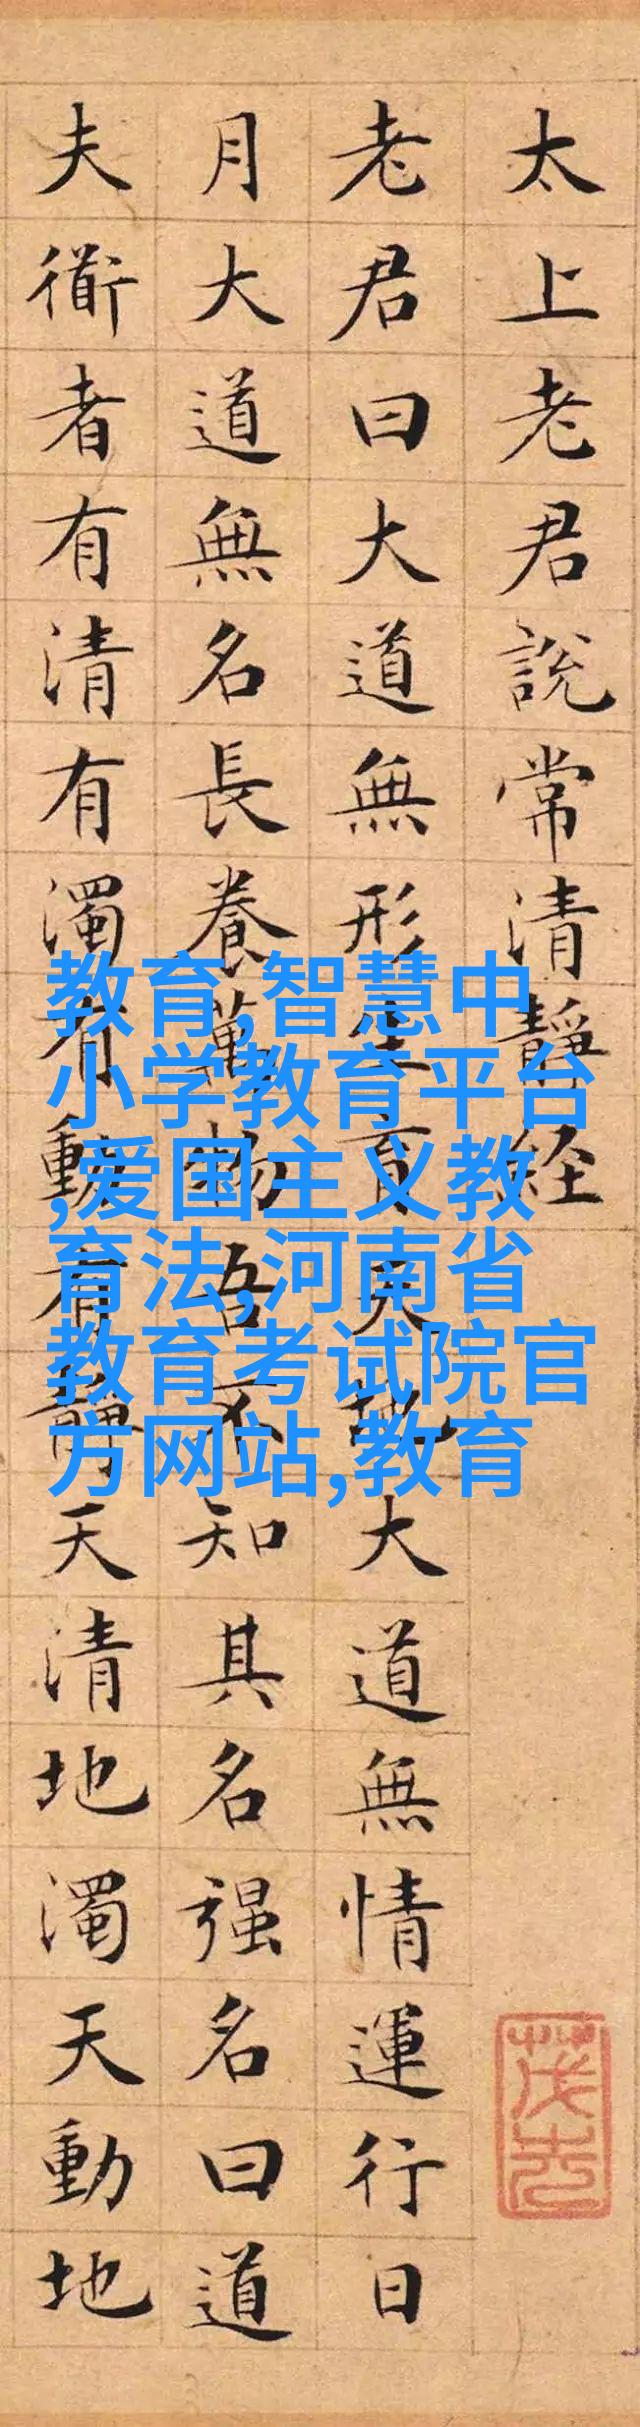 太上老君說常清靜経
老君曰大道無形生育天地大道無情運行日
月大道無名長養萬物吾不知其名强名曰道
夫衜者有清有濁有動有静天清地濁天動地
教育,智慧中
小学教育平台
,爱国主义教
育法,河南省
教育考试院官
方网站,教育